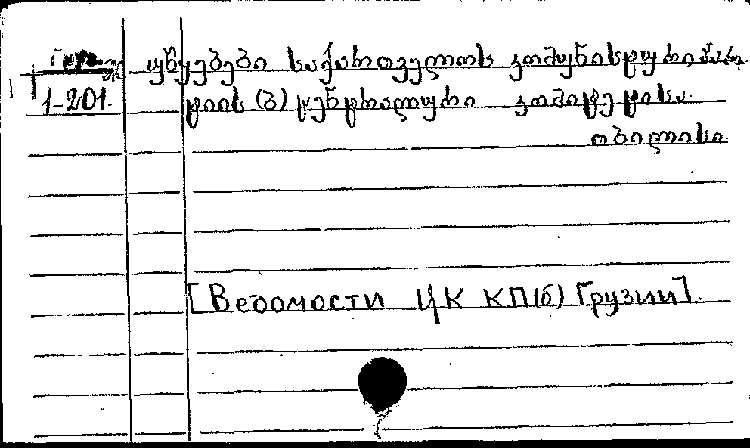 უწყებები საქართველოს კომუნისტური პარ-
1-201. ტიის (ბ) ცენტრალური კომიტეტისა.
თბილისი
[Ведомости ЦК КП(б) Грузии].